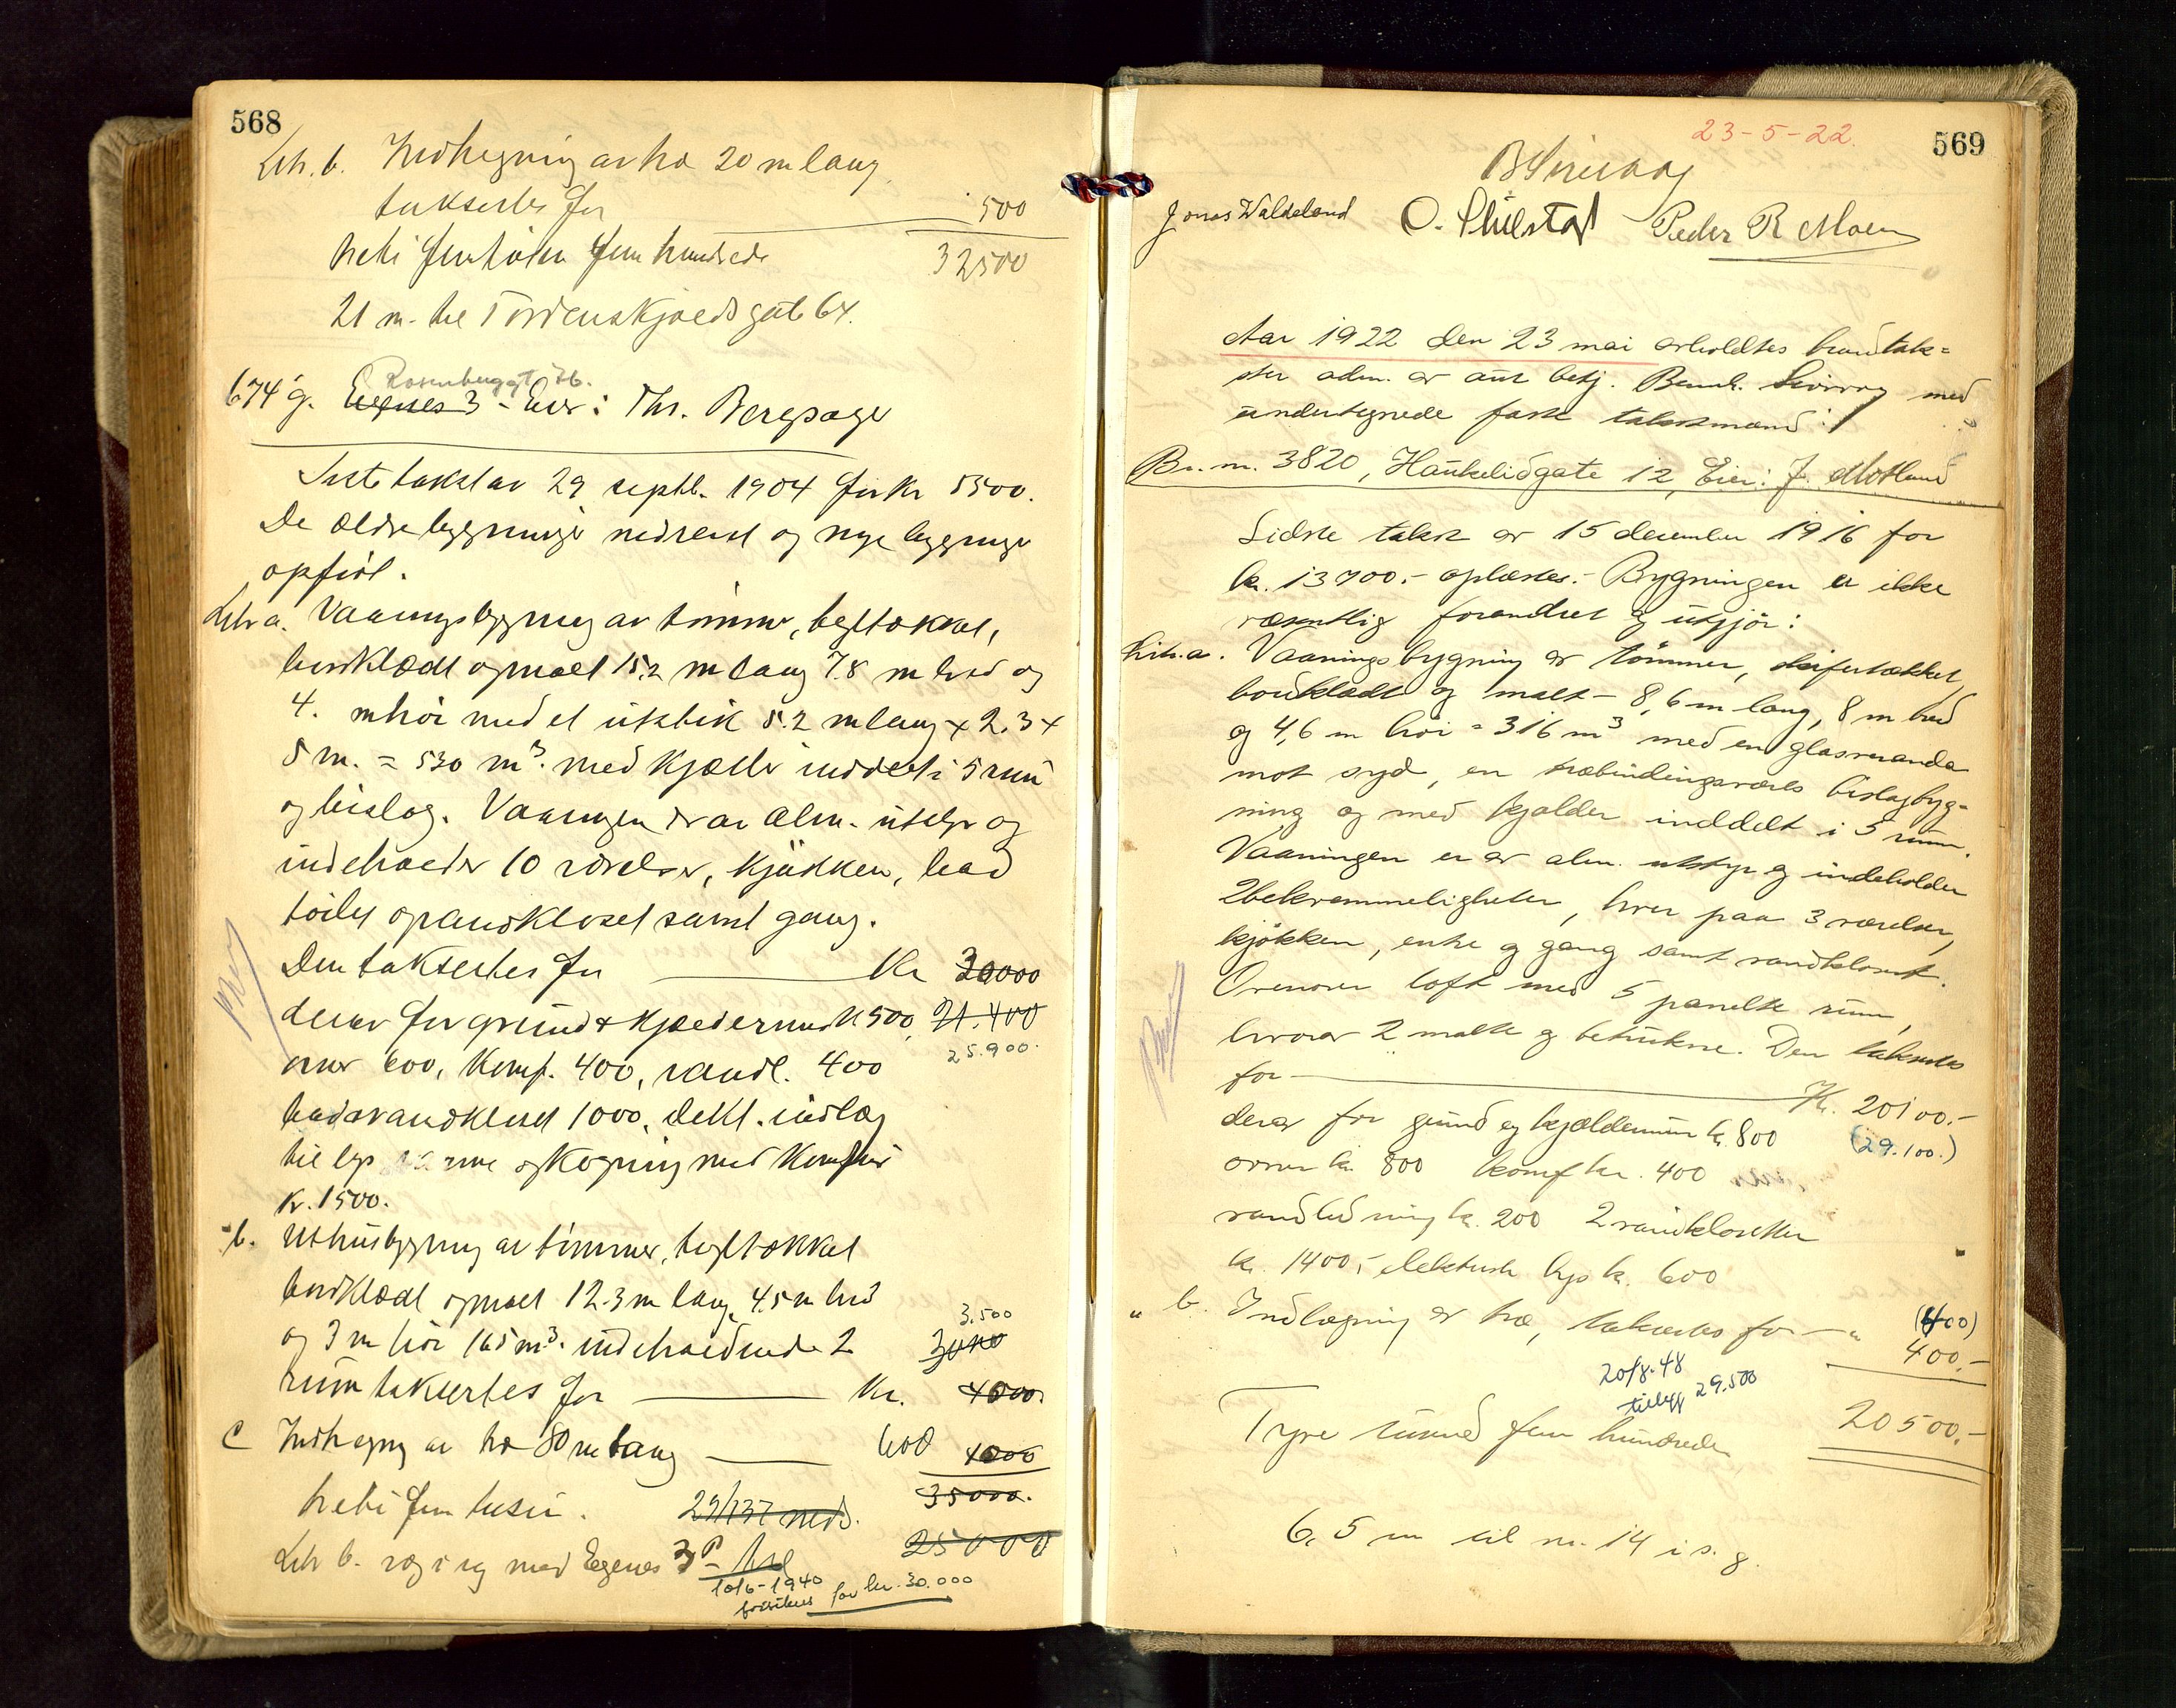 568
Litr. b. Indhegning av træ 20 m lang
taksertes for 500
32500
21 m. til Tordenskjoldsgate 64.
Rosenberggt. 76.
674 g. Egenes 3 - Eier: Thr. Bergsage
Siste takst av 29 septb. 1904 for kr 5500.
De ældre bygninger nedrevet og nye bygninger
opført.
Litr a. Vaaningsbygning av tømmer, tegltækket,
bordklædt og malt 15.2 m lang 7.8 m bred og
4. m høi med et utstik 5.2 m lang x 2.3 x
5 m. = 530 m³. med kjelder inddelt i 5 rum
og bislag. Vaaningen er av alm. utstyr og
indeholder 10 værelser, kjøkken, bad
toilet og vandkloset samt gang.
Den taksertes for Kr 30000
derav for grund & kjelderrum kr 500, 21.400
ovner 600, komf. 400, vandl. 400 25.900.
bad & vandkloset 1000, elekt. indlæg
til lys, varme og kogning med komfur
kr. 1500.
- b. Uthusbygning av tømmer, tegltækket
bordklædt og malt 12.3 m lang, 4.5 m bred
3.500
og 3 m høi 165 m³. indeholdende 2 3000
rum taksertes for Kr. 4000.
c Indhegning av træ 80 m lang 600 1000
35000.
29/137 neds.
25000
Litr b. væg i væg med Egenes 3
10/6-1940
for kr. 30.000
569
23-5-22.
Jonas Waldeland O. Thilstad Peder R Moen
Aar 1922 den 23 mai avholdtes brandtak=
ster adm. av aut betj. Bernh. med
undertegnede faste takstmænd:
Br. nr. 3820, Haukelidgate 12, Eier: J. Motland
Sidste takst av 15 december 1916 for
kr. 13700.- oplæstes.- Bygningen er ikke
væsentlig forandret og utgjør:
Litr. a. Vaaningsbygning av tømmer, skifertækket,
bordklædt og malt - 8,6 m lang, 8 m bred
og 4,6 m høi = 316 m³ med en glasveranda
mot syd, en træbindingsverks bislagbyg-
ning og med kjælder inddelt i 5 rum.
Vaaningen er av alm. utstyr og indeholder
2 bekvemmeligheter, hver paa 3 værelser,
kjøkken, entre og gang samt vandkloset.
Ovenover loft med 5 panelte rum,
hvorav 2 malte og betrukne. Den takseres
for Kr. 20100.-
derav for grund og kjælderrum kr. 800 (29.100.)
ovner kr. 800 komf kr. 400
vandledning kr. 200 2 vandklosetter
kr. 1400,- elektrisk lys kr. 600
" b. Indhegning av træ, takseres for - " (400)
400.-
20/8-48
tillegg 29.500
Tyve tusind fem hundrede 20500.-
6,5 m til nr. 14 i s. g.